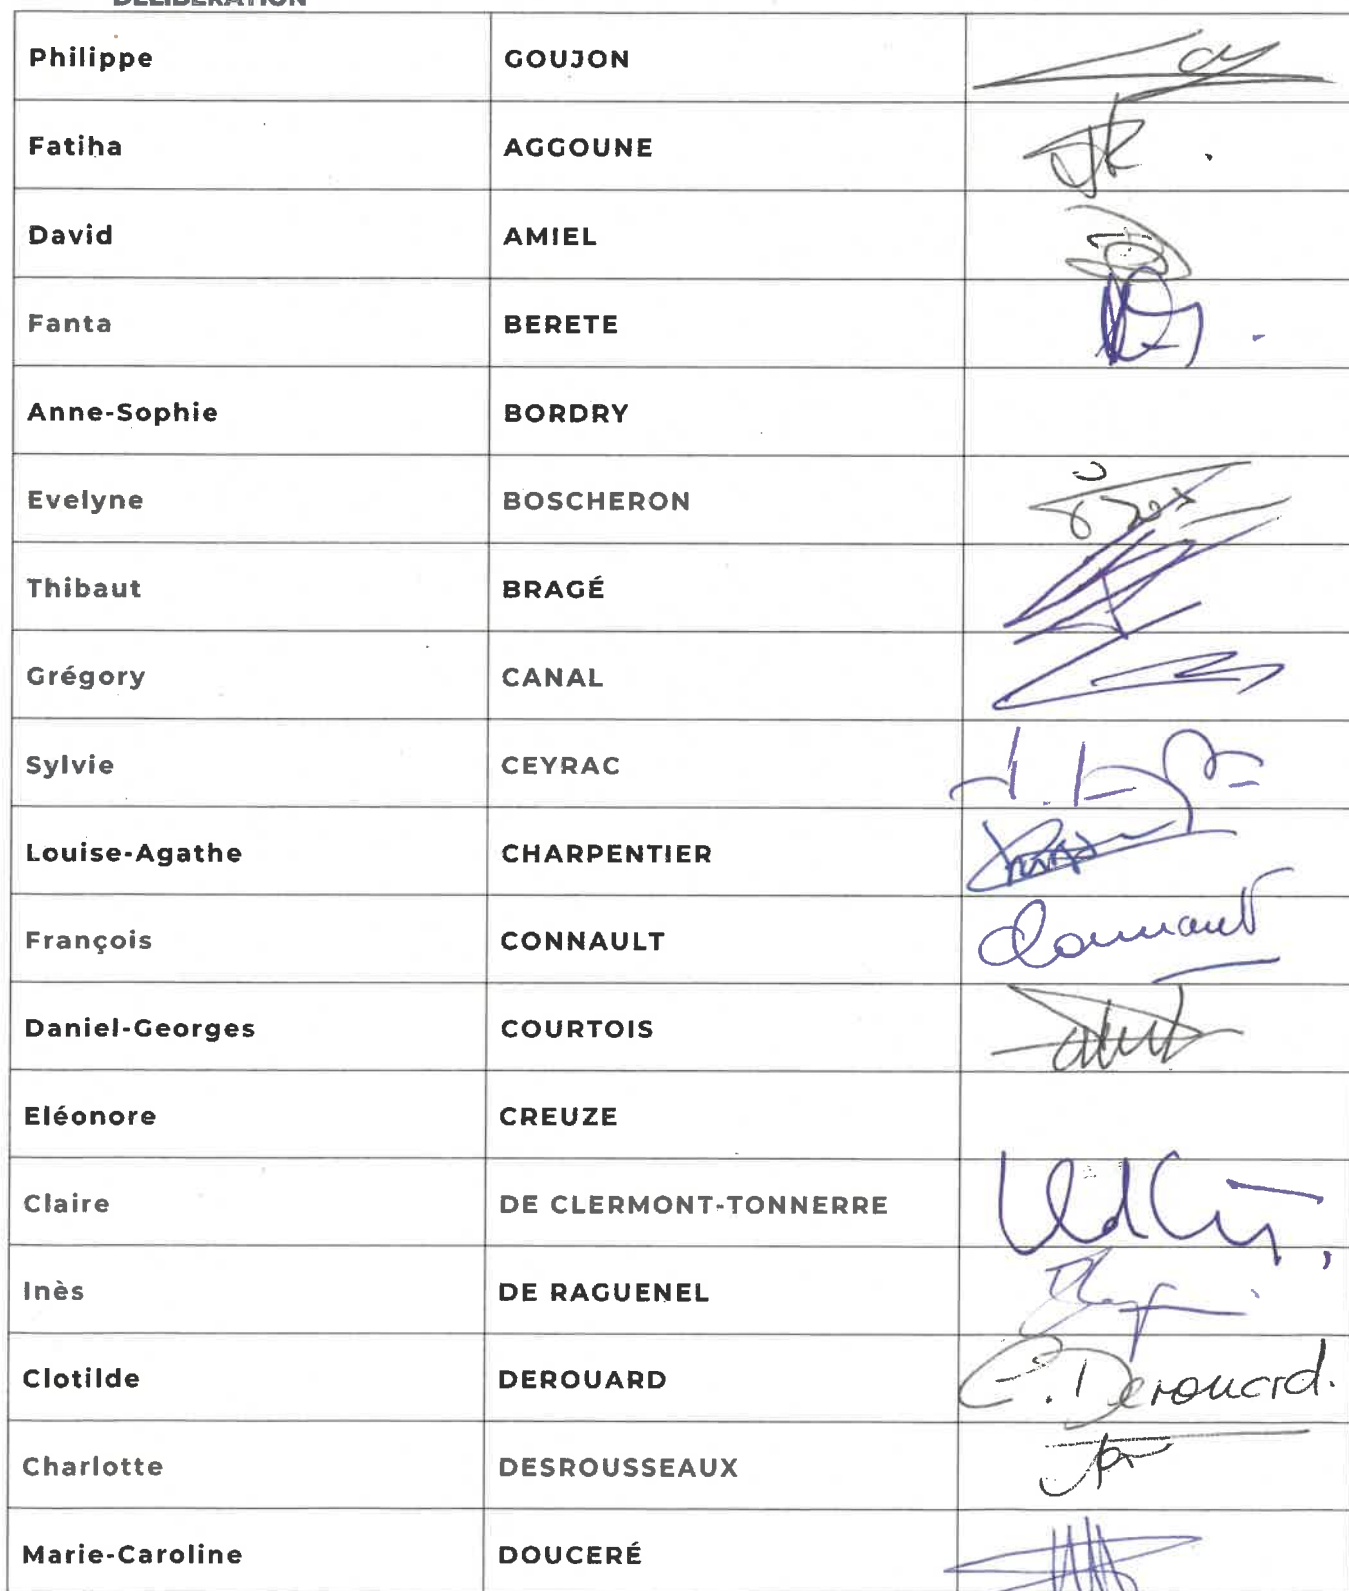 DÉLIBÉRATION
Philippe GOUJON
Fatiha AGGOUNE
David AMIEL
Fanta BERETE
Anne-Sophie BORDRY
Evelyne BOSCHERON
Thibaut BRAGÉ
Grégory CANAL
Sylvie CEYRAC
Louise-Agathe CHARPENTIER
François CONNAULT Connault
Daniel-Georges COURTOIS
Eléonore CREUZE
Claire DE CLERMONT-TONNERRE
Inès DE RAGUENEL
Clotilde DEROUARD C. Derouard.
Charlotte DESROUSSEAUX
Marie-Caroline DOUCERÉ